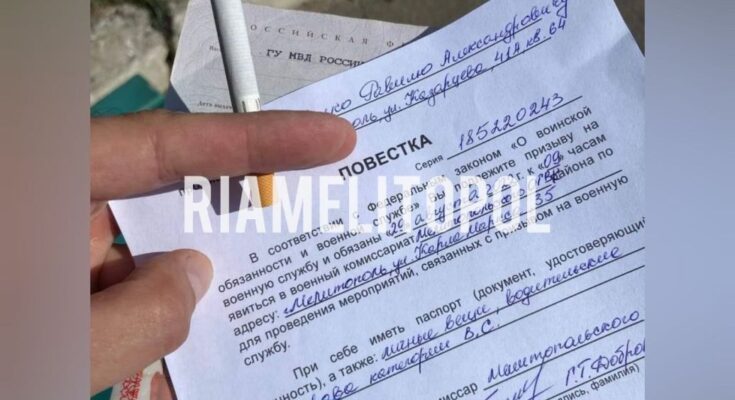 РОССИЙСКАЯ Ф
ГУ МВД РОССИИ
Дата выдачи
ко Равилю Александровичу
поль, ул. Казарцева, 41А, кв. 64
ПОВЕСТКА
Серия 185220243
В соответствии с федеральным законом «О воинской
обязанности и военной службе» Вы подлежите призыву на
военную службу и обязаны августа к «09» часам
явиться в военный комиссариат района по
адресу: Мелитополь, ул. Карла Маркса 35
для проведения мероприятий, связанных с призывом на военную
службу.
При себе иметь паспорт (документ, удостоверяющий
личность), а также: личные вещи, водительские
права категории В, С.
Мелитопольского
Г.Т. Добров
фамилия)
RIAMELITOPOL